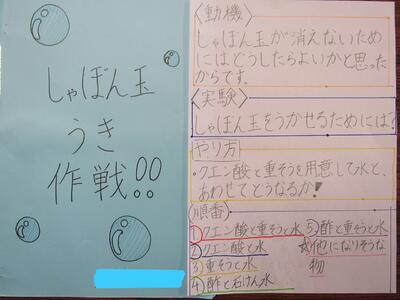 しゃぼん玉
うき
作戦!!
〈動機〉
しゃぼん玉が消えないため
にはどうしたらよいかと思った
からです。
〈実験〉
しゃぼん玉をうかせるためには?
やり方
・クエン酸と重そうを用意して水と、
あわせてどうなるか!
〈順番〉
①クエン酸と重そうと水 ⑤酢と重そうと水
②クエン酸と水 ☆他になりそうな
③重そうと水 物
④酢と石けん水